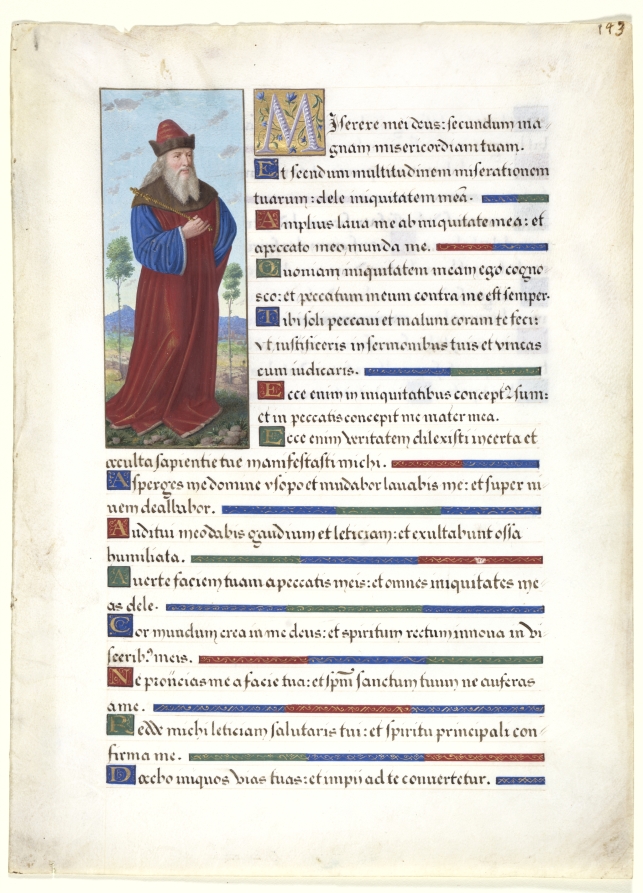 143
Miserere mei deus: secundum ma
gnam misericordiam tuam.
Et secundum multitudinem miserationem
tuarum: dele iniquitatem meā.
Amplius laua me ab iniquitate mea: et
a peccato meo munda me.
Quoniam iniquitatem meam ego cogno
sco: et peccatum meum contra me est semper.
Tibi soli peccaui et malum coram te feci:
vt iustificeris in sermonibus tuis et vincas
cum iudicaris.
Ecce enim in iniquitatibus concept9 sum:
et in peccatis concepit me mater mea.
Ecce enim veritatem dilexisti incerta et
occulta sapientie tue manifestasti michi.
Asperges me domine ysopo et mūdabor lauabis me: et super ni
uem dealbabor.
Auditui meo dabis gaudium et leticiam: et exultabunt ossa
humiliata.
Auerte faciem tuam a peccatis meis: et omnes iniquitates me
as dele.
Cor mundum crea in me deus: et spiritum rectum innoua in vi
scerib9 meis.
Ne proiicias me a facie tua: et spm̄ sanctum tuum ne auferas
a me.
Redde michi leticiam salutaris tui: et spiritu principali con
firma me.
Docebo iniquos vias tuas: et impii ad te conuertetur.